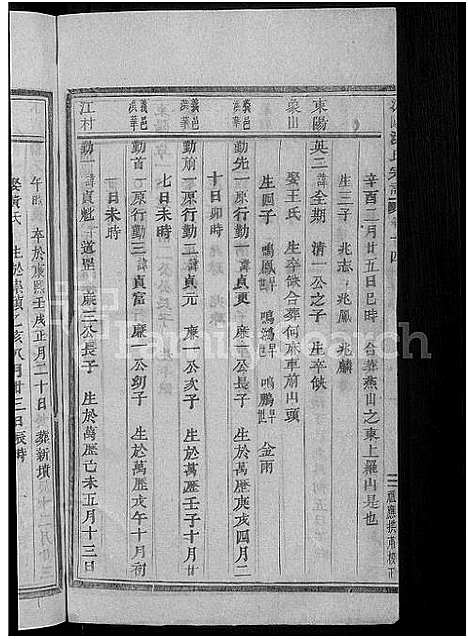 辛酉二月廿五日巳時 合葬燕山之東上羅山是也
生三子 兆志 兆鳳 兆麟
東陽 英二 諱全期 清一公之子 生卒缺
栗山
娶王氏 生卒缺合葬何麻車前山頭
生四子 鳴鳳 鳴鴻 鳴鵬 金雨
義邑 洪華 勤先一原行勤一 諱貞更 廉一公長子 生於萬歷庚戌四月二
十日卯時
義邑 洪華 勤前一原行勤二 諱貞元 廉一公次子 生於萬歷壬子十月廿
七日未時
義邑 洪華 勤首一原行勤三 諱貞富 廉一公幼子 生於萬歷戊午十月初
一日未時
江村 勤一 諱貞魁 字道 廉三公長子 生於萬歷己未五月十三日
午時 卒於康熙壬戌正月二十日 葬新墳
娶黃氏 生於崇禎乙亥八月廿三日辰時
FamilySearch